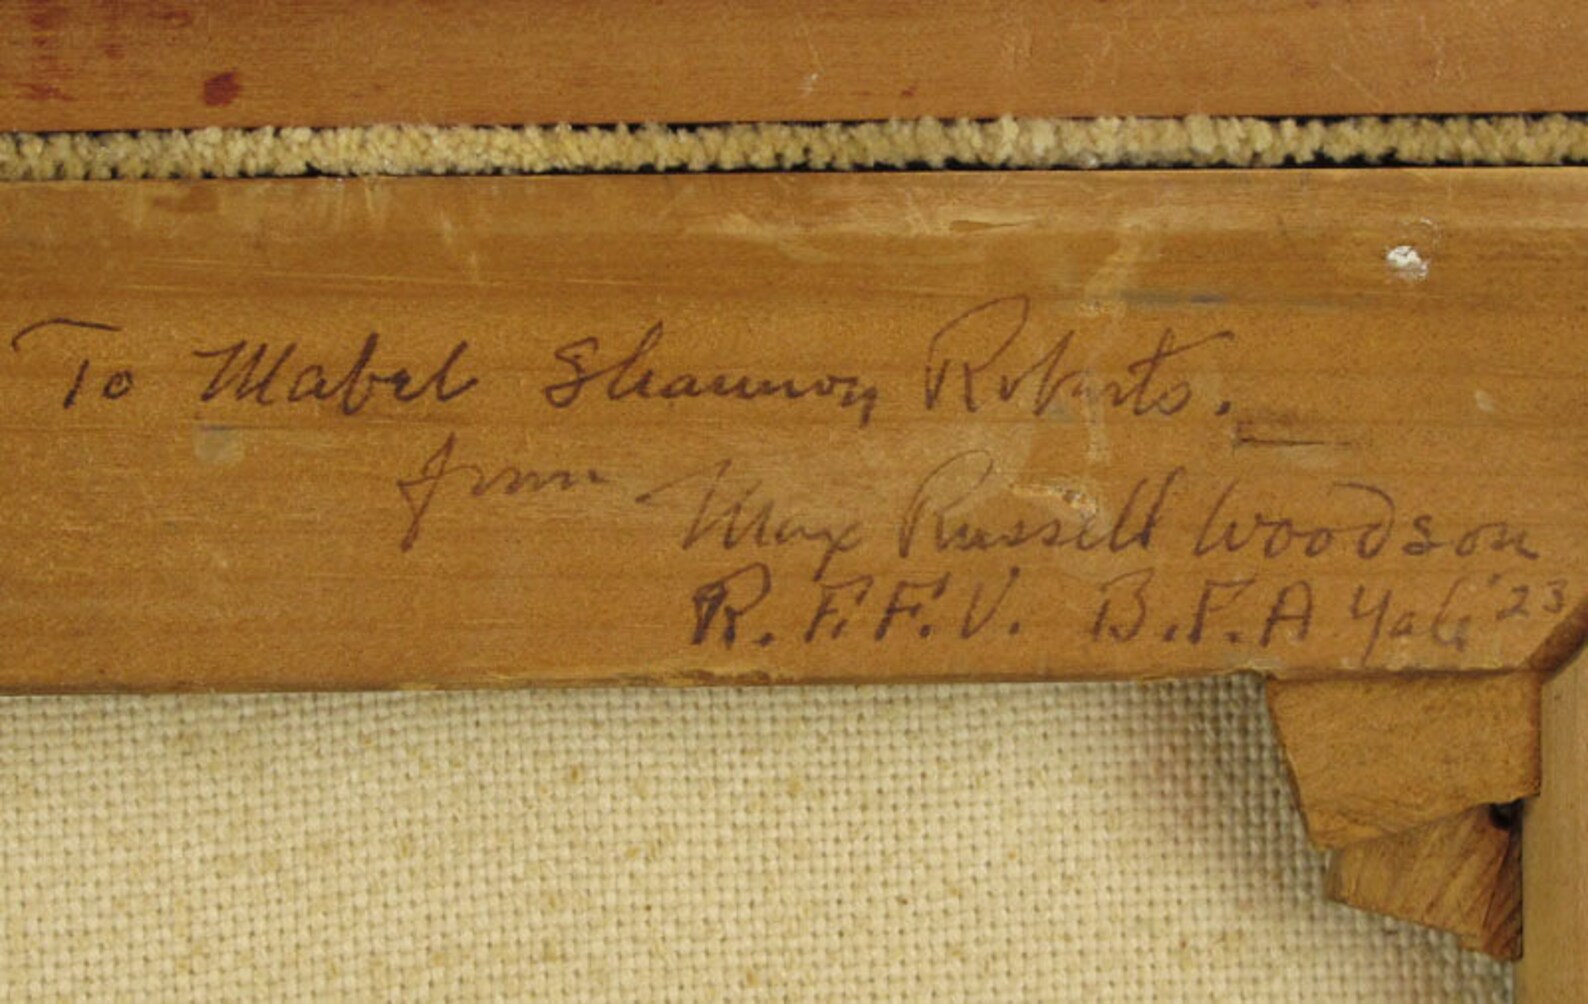 To Mabel Shannon Roberts.
from
Max Russell Woodson
R. F.F.V. B.F.A Yale '23